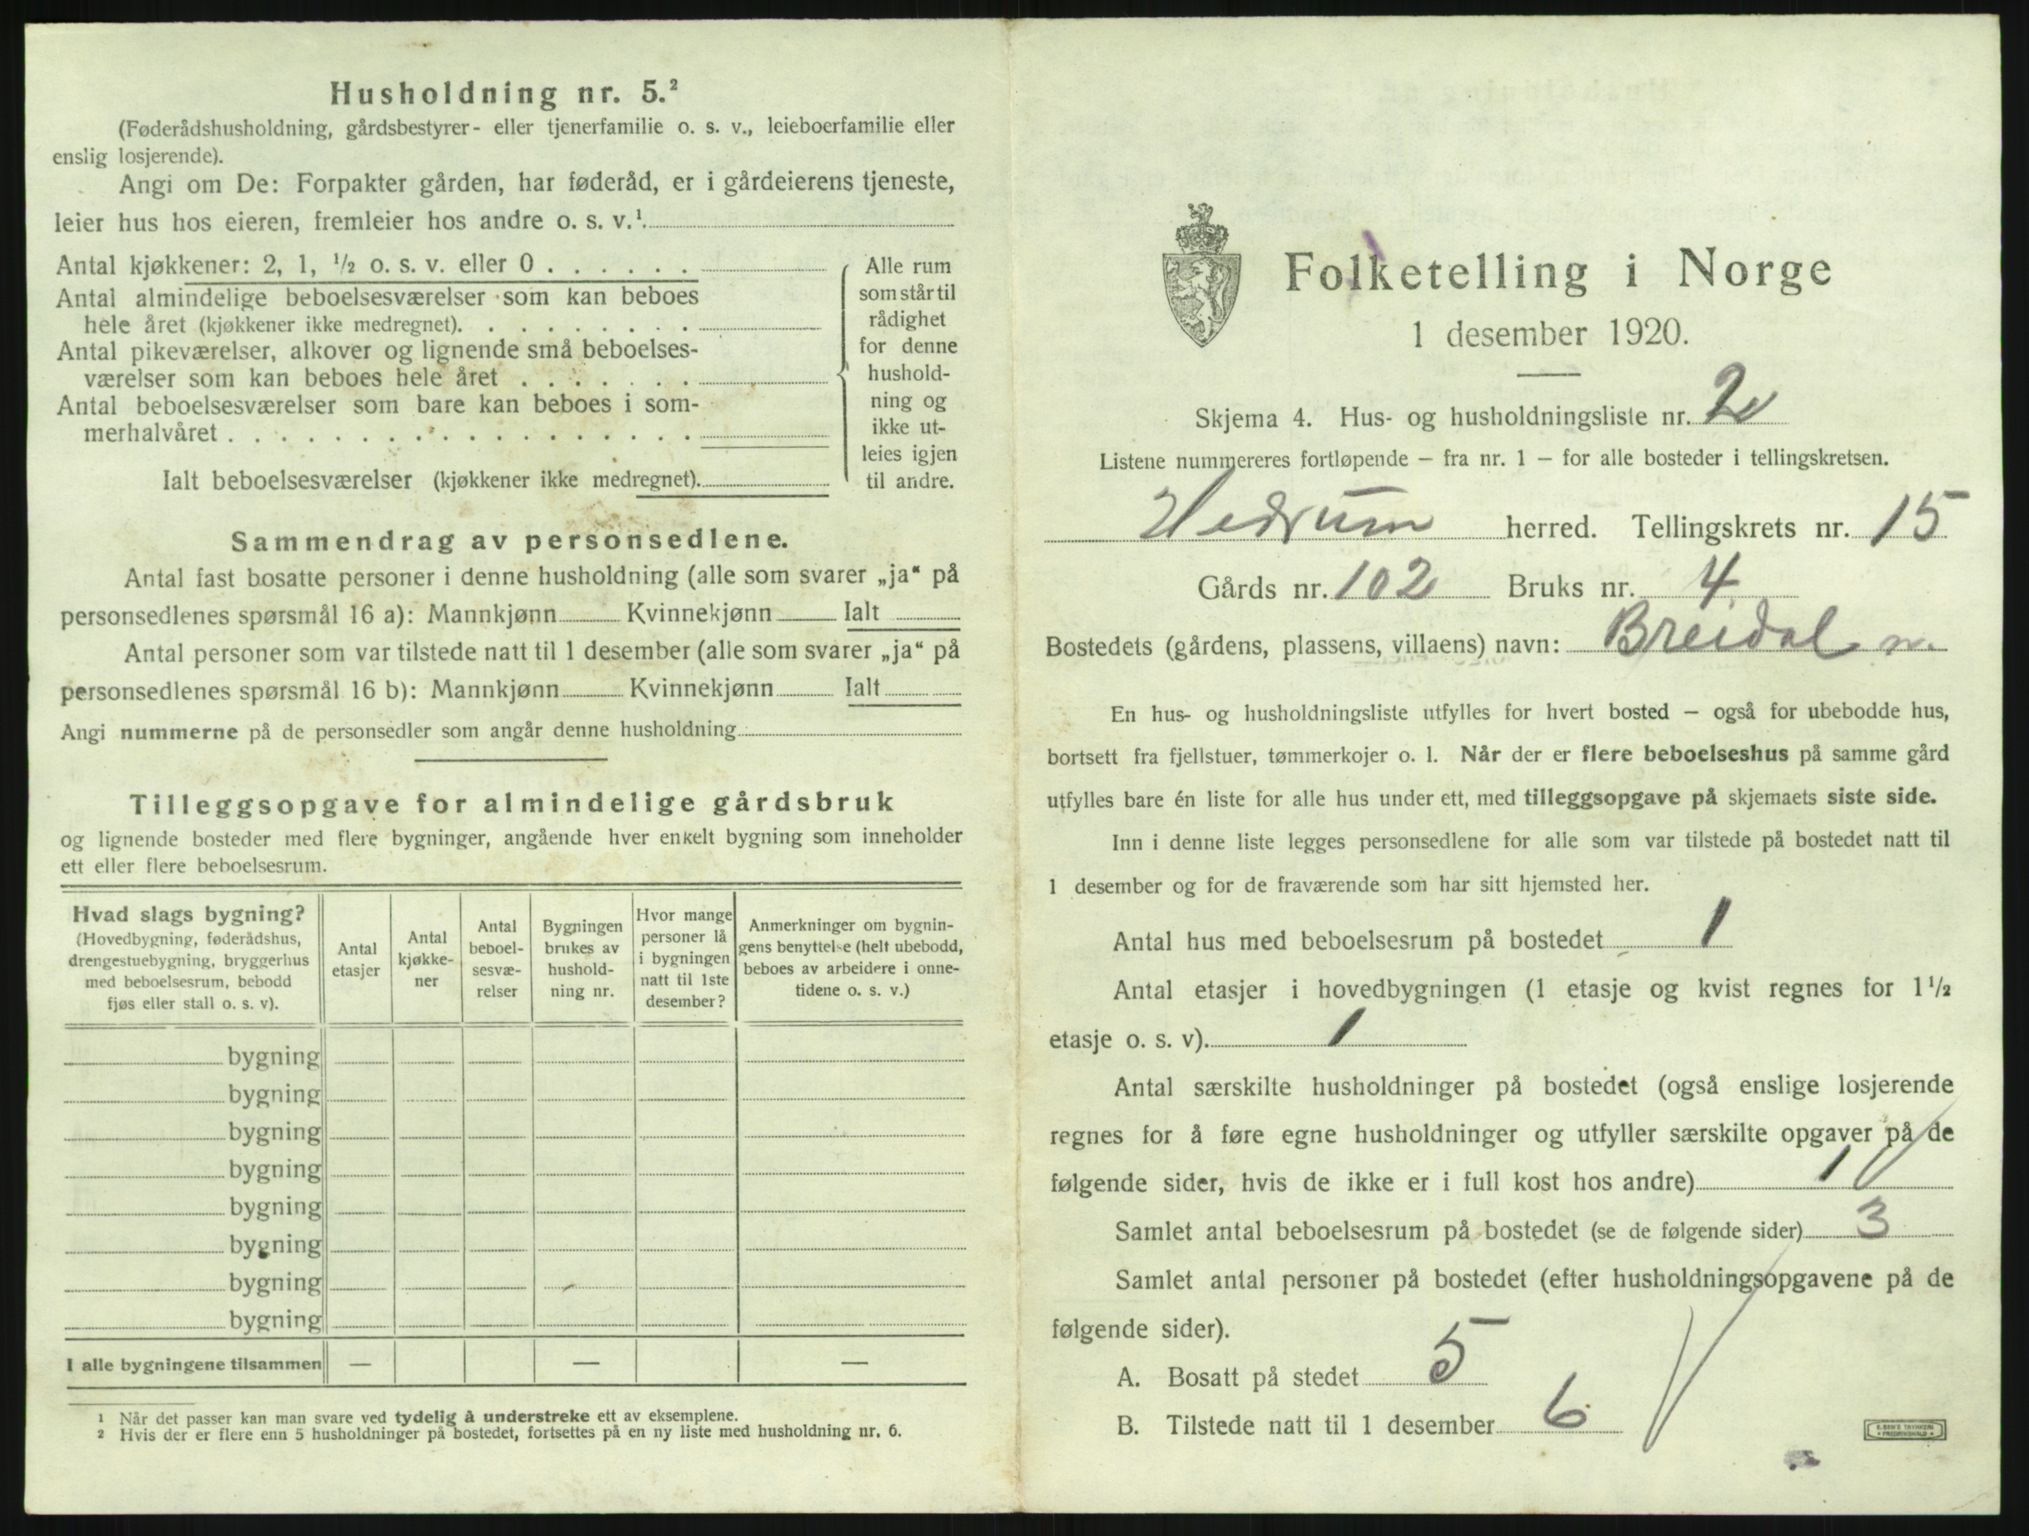 Husholdning nr. 5.²
(Føderådshusholdning, gårdsbestyrer- eller tjenerfamilie o. s. v., leieboerfamilie eller
enslig losjerende).
Angi om De: Forpakter gården, har føderåd, er i gårdeierens tjeneste,
leier hus hos eieren, fremleier hos andre o. s. v.¹
Antal kjøkkener: 2, 1, ½ o. s. v. eller 0
Antal almindelige beboelsesværelser som kan beboes
hele året (kjøkkener ikke medregnet).
Antal pikeværelser, alkover og lignende små beboelses-
værelser som kan beboes hele året
Antal beboelsesværelser som bare kan beboes i som-
merhalvåret
Ialt beboelsesværelser (kjøkkener ikke medregnet).
Alle rum
som står til
rådighet
for denne
hushold-
ning og
ikke ut-
leies igjen
til andre.
Sammendrag av personsedlene.
Antal fast bosatte personer i denne husholdning (alle som svarer „ja“ på
personsedlenes spørsmål 16 a): Mannkjønn Kvinnekjønn Ialt
Antal personer som var tilstede natt til 1 desember (alle som svarer „ja“ på
personsedlenes spørsmål 16 b): Mannkjønn Kvinnekjønn Ialt
Angi nummerne på de personsedler som angår denne husholdning
Tilleggsopgave for almindelige gårdsbruk
og lignende bosteder med flere bygninger, angående hver enkelt bygning som inneholder
ett eller flere beboelsesrum.
Hvad slags bygning?
(Hovedbygning, føderådshus,
drengestuebygning, bryggerhus
med beboelsesrum, bebodd
fjøs eller stall o. s. v).
Antal
etasjer
Antal
kjøkke-
ner
Antal
beboel-
sesvæ-
relser
Bygningen
brukes av
hushold-
ning nr.
Hvor mange
personer lå
i bygningen
natt til 1ste
desember?
Anmerkninger om bygnin-
gens benyttelse (helt ubebodd,
beboes av arbeidere i onne-
tidene o. s. v.)
bygning
bygning
bygning
bygning
bygning
bygning
bygning
bygning
I alle bygningene tilsammen — — —
¹ Når det passer kan man svare ved tydelig å understreke ett av eksemplene.
² Hvis der er flere enn 5 husholdninger på bostedet, fortsettes på en ny liste med husholdning nr. 6.
Folketelling i Norge
1 desember 1920.
Skjema 4. Hus- og husholdningsliste nr. 2
Listene nummereres fortløpende – fra nr. 1 – for alle bosteder i tellingskretsen.
Hedrum herred. Tellingskrets nr. 15
Gårds nr. 102 Bruks nr. 4
Bostedets (gårdens, plassens, villaens) navn: Breidal n.
En hus- og husholdningsliste utfylles for hvert bosted – også for ubebodde hus,
bortsett fra fjellstuer, tømmerkojer o. l. Når der er flere beboelseshus på samme gård
utfylles bare én liste for alle hus under ett, med tilleggsopgave på skjemaets siste side.
Inn i denne liste legges personsedlene for alle som var tilstede på bostedet natt til
1 desember og for de fraværende som har sitt hjemsted her.
Antal hus med beboelsesrum på bostedet 1
Antal etasjer i hovedbygningen (1 etasje og kvist regnes for 1½
etasje o. s. v). 1
Antal særskilte husholdninger på bostedet (også enslige losjerende
regnes for å føre egne husholdninger og utfyller særskilte opgaver på de
følgende sider, hvis de ikke er i full kost hos andre) 1
Samlet antal beboelsesrum på bostedet (se de følgende sider) 3
Samlet antal personer på bostedet (efter husholdningsopgavene på de
følgende sider).
A. Bosatt på stedet 5
B. Tilstede natt til 1 desember 6